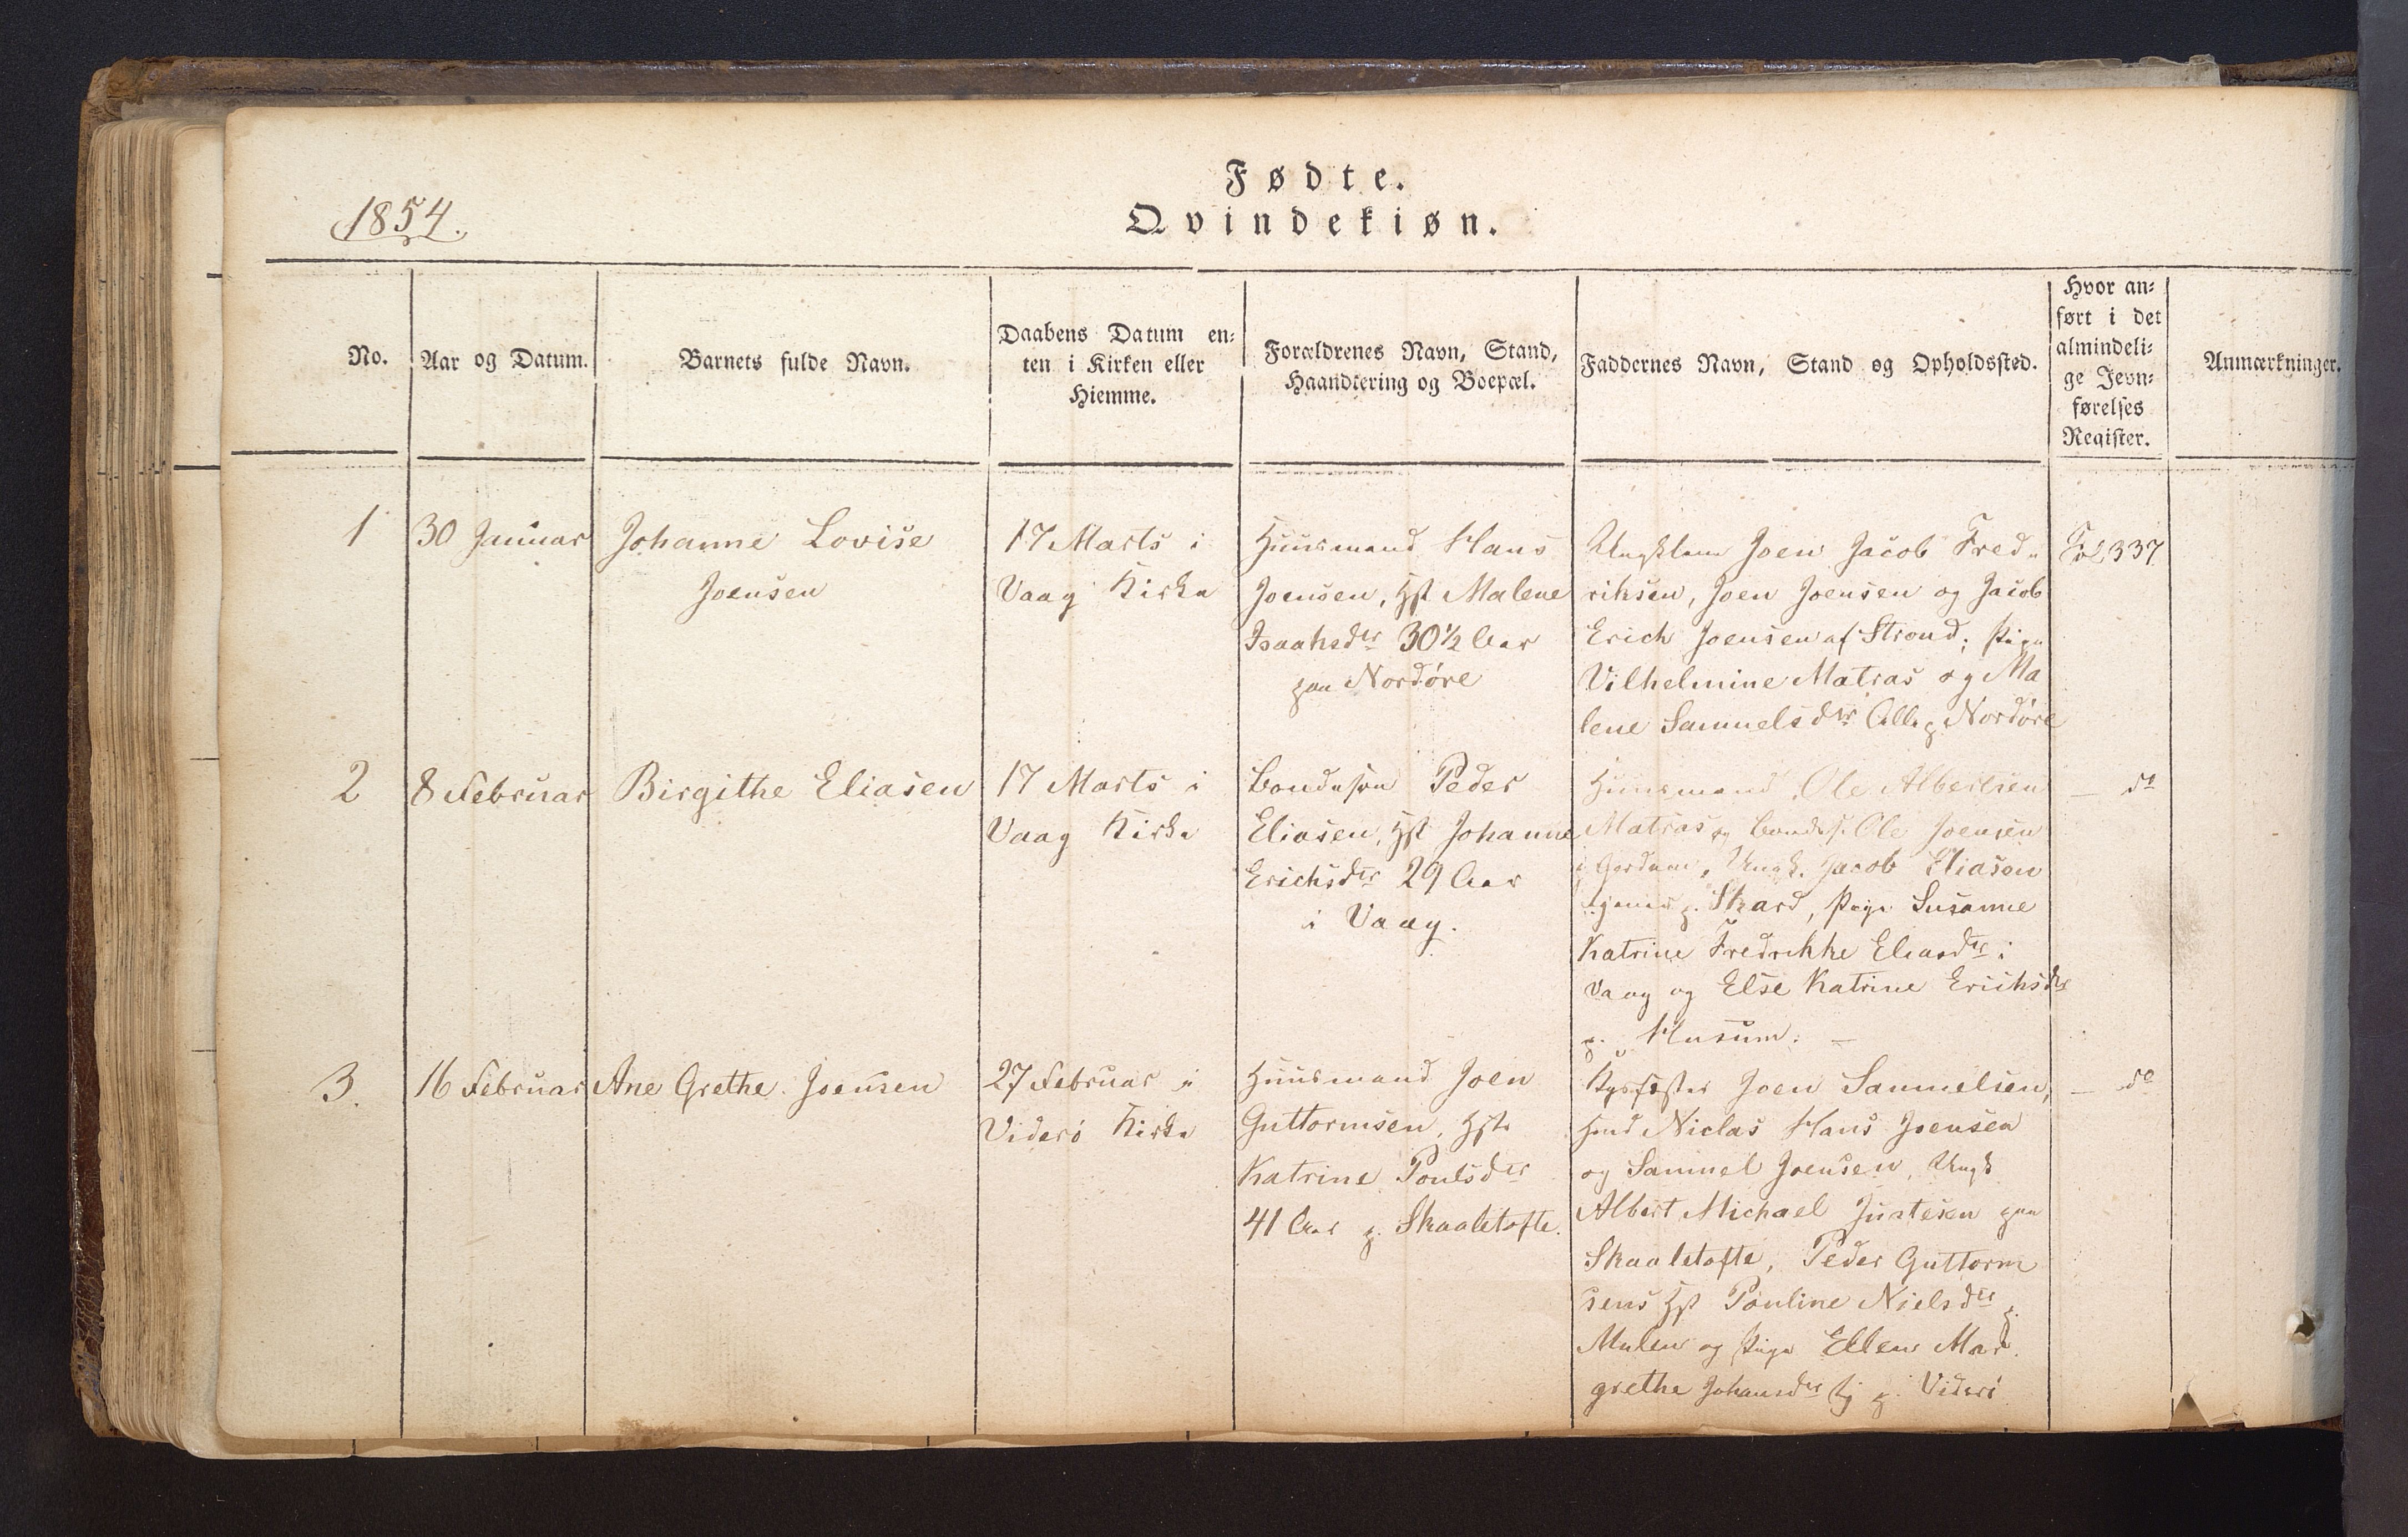 1854.
Fødte.
Qvindekiøn.
No.
Aar og Datum.
Barnets fulde Navn.
Daabens Datum en-
ten i Kirken eller
Hiemme.
Forældrenes Navn, Stand,
Haandtering og Boepæl.
Faddernes Navn, Stand og Opholdssted.
Hvor an-
ført i det
almindeli-
ge Jevn-
førelses
Register.
Anmærkninger.
1
30 Januar
Johanne Lovise
Joensen
17 Marts i
Vaag Kirke
Huusmand Hans
Joensen, Hst Malene
Isaaksdtr 30½ Aar
paa Nordøre
Joen Jacob Fred-
riksen, Joen Joensen og Jacob
Erich Joensen af Strond; Pige
Vilhelmine Matras og Ma
lene Samuelsdtr Alle p. Nordøre
Fol 337
2
8 Februar
Birgithe Eliasen
17 Marts i
Vaag Kirke
Bondesøn Peder
Eliasen, Hst Johanne
Erichsdtr 29 Aar
i Vaag.
Huusmand Ole Albertsen
Matras og Bondes. Ole Joensen
i Gerdum, Ungk. Jacob Eliasen
p. Skard, Pige Susanne
Katrine Fredrikke Eliasdtr i
Vaag og Else Katrine Erichsdtr
p. Husum. —
— do
3.
16 Februar
Ane Grethe Joensen
27 Februar i
Viderø Kirke
Huusmand Joen
Guttormsen, Hst
Katrine Poulsdtr
41 Aar p. Skaaletofte.
Joen Samuelsen,
Hmd Niclas Hans Joensen
og Samuel Joensen, Ungk
Albert Michael Justesen paa
Skaaletofte, Peder Guttorm
sens Hst Pouline Nielsdtr p.
Mulen og Pige Ellen Mar
grethe Johansdtr p. Viderø
— do